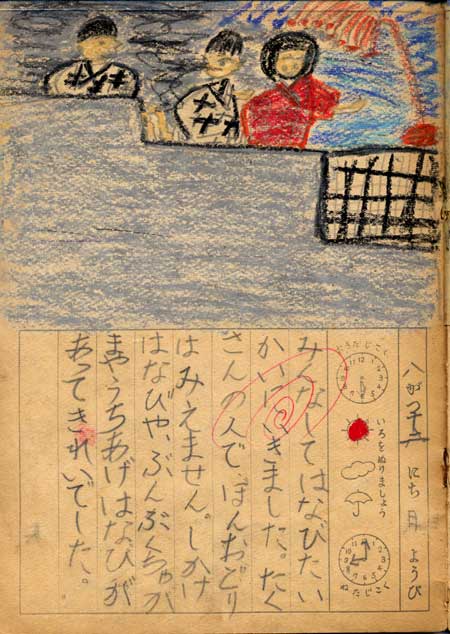 八がつ十二にち 日ようび
おきたじこく
いろをぬりましょう
ねたじこく
みんなしてはなびたい
かいにいきました。たく
さんの人で、ぼんおどり
はみえません。しかけ
はなびや、ぶんぶくちゃが
まやうちあげはなびが
あってきれいでした。